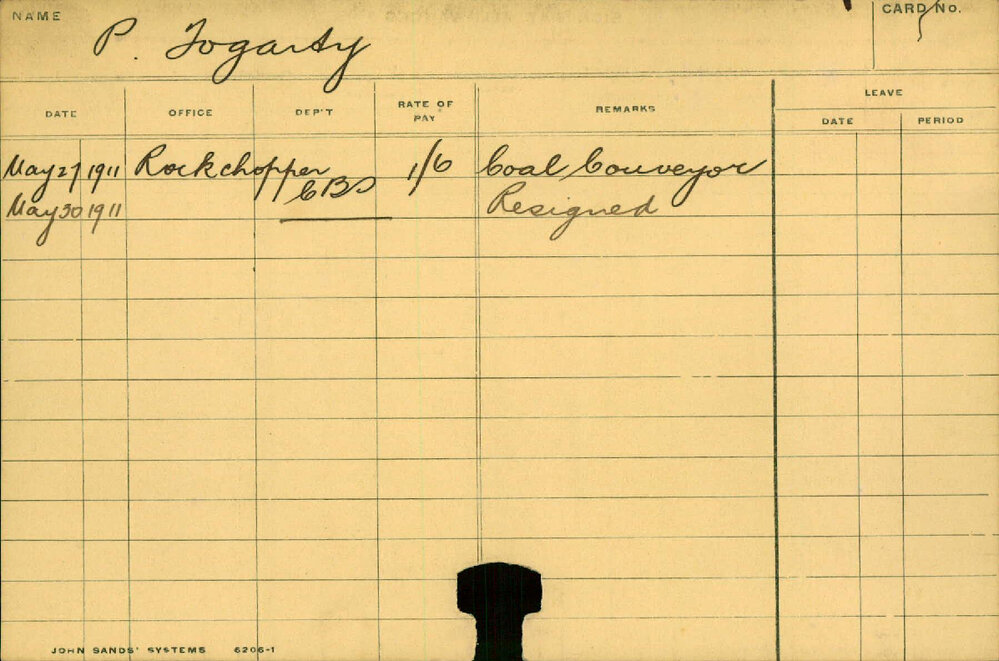 NAME
CARD No.
P. Fogarty
DATE OFFICE DEP'T RATE OF PAY REMARKS LEAVE
DATE PERIOD
May 27 1911 Rockchopper 1/6 Coal Conveyor
May 30 1911 Resigned
JOHN SANDS' SYSTEMS 6206-1